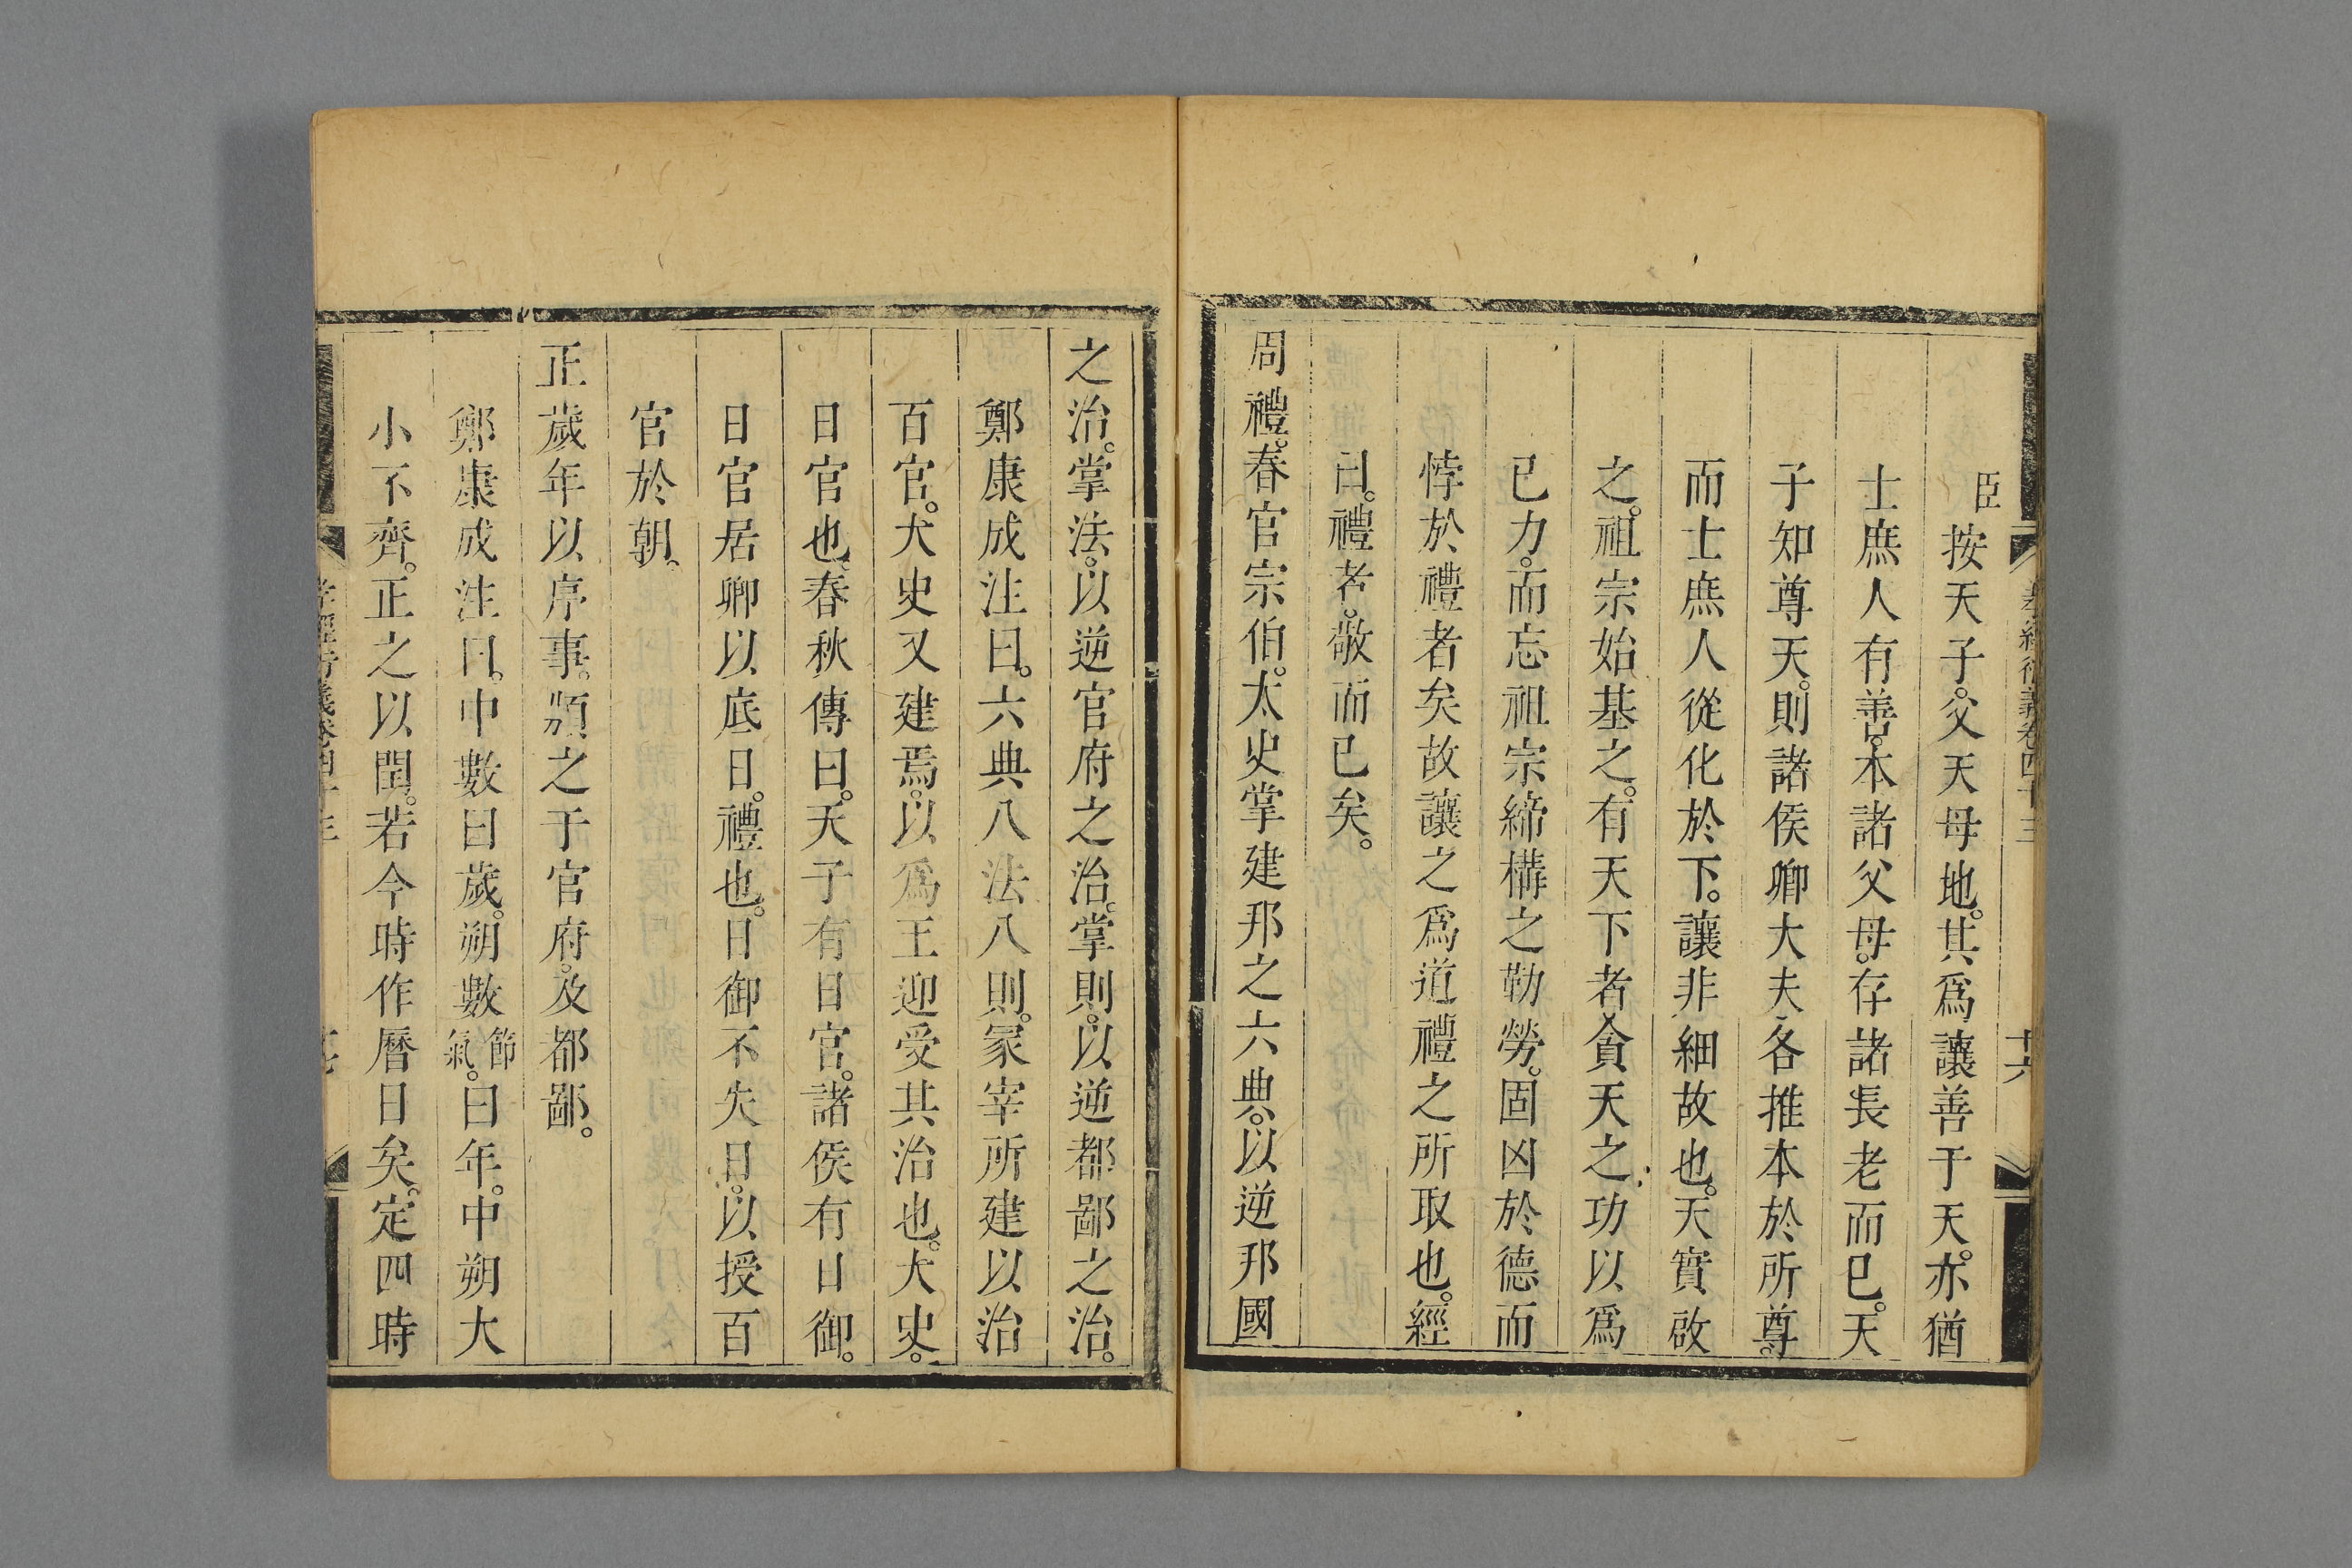 臣按天子。父天母地。其爲讓善于天。亦猶
士庶人有善。本諸父母。存諸長老而已。天
子知尊天。則諸侯卿大夫各推本於所尊。
而士庶人從化於下。讓非細故也。天實啟
之。祖宗始基之。有天下者貪天之功以爲
已力。而忘祖宗締構之勤勞。固凶於德而
悖於禮者矣故讓之爲道禮之所取也。經
曰。禮者。敬而已矣。
周禮。春官宗伯。太史掌建邦之六典。以逆邦國
孝經衍義卷四十三
十六
之治。掌法。以逆官府之治。掌則。以逆都鄙之治。
鄭康成注曰。六典八法八則。冢宰所建以治
百官。大史又建焉。以爲王迎受其治也。大史。
日官也。春秋傳曰。天子有日官。諸侯有日御。
日官居卿以底日。禮也。日御不失日。以授百
官於朝。
正歲年以序事。頒之于官府。及都鄙。
鄭康成注曰。中數曰歲。朔數節氣。曰年。中朔大
小不齊。正之以閏。若今時作曆日矣。定四時